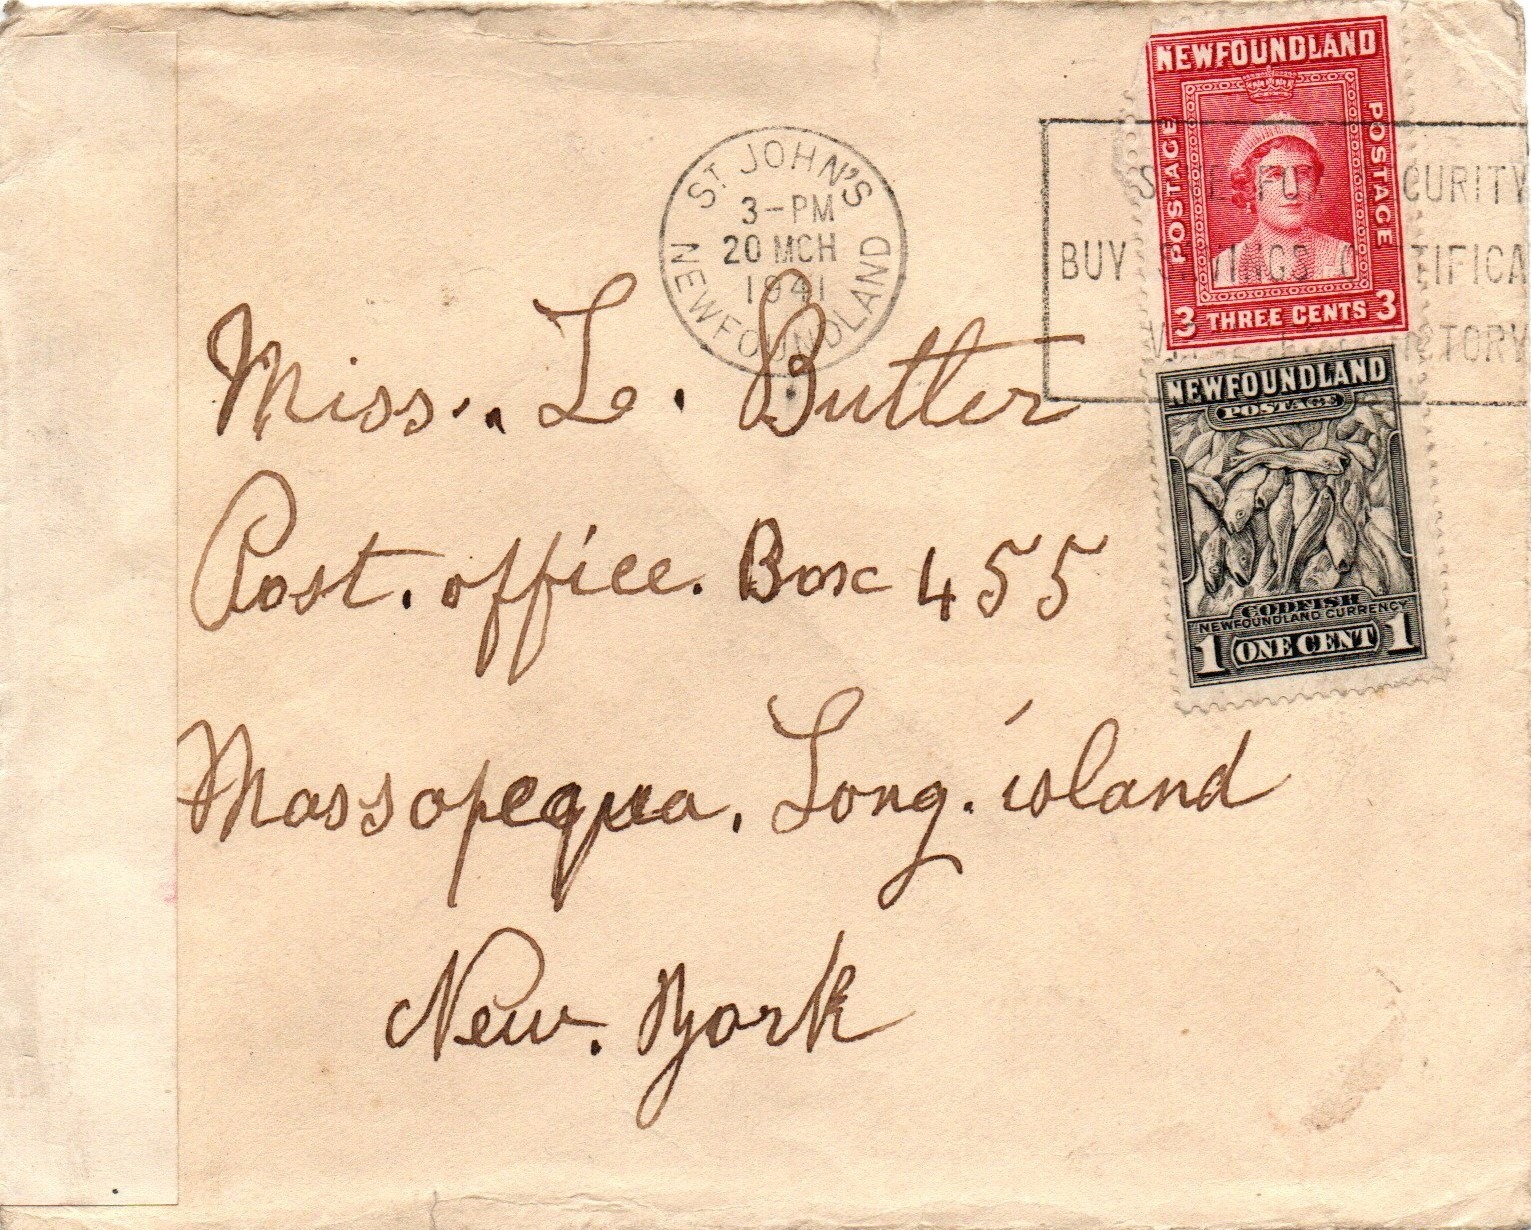 ST JOHN'S
3-PM
20 MCH
1941
NEWFOUNDLAND
CURITY
BUY
TIFICA
CTORY
NEWFOUNDLAND
POSTAGE
POSTAGE
3 THREE CENTS 3
NEWFOUNDLAND
POSTAGE
CODFISH
NEWFOUNDLAND CURRENCY
1 ONE CENT 1
Miss. L. Butler
Post. office. Box 455
Massapequa, Long. island
New. York